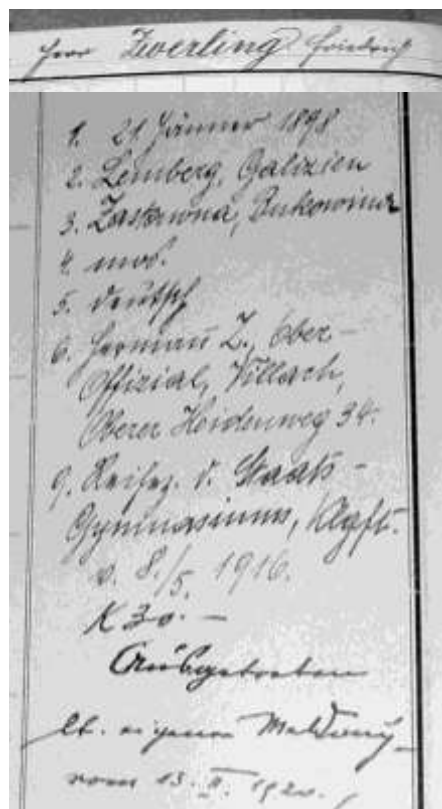 Herr Zwerling Friedrich
1. 21. Jänner 1898
2. Lemberg, Galizien
3. Zastawna, Bukowina
4. mos.
5. deutsch
6. Hermann Z., Ober-
Offizial, Villach,
Oberer Heidenweg 34.
9. Reifez. d. Staats-
Gymnasiums, Klgft.
v. 8./5. 1916.
K 30.-
Ausgetreten
lt. eigener Meldung
vom 13. II. 1920.